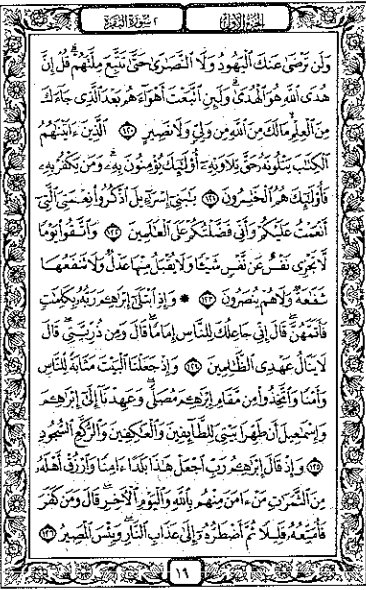 الجزء الأول
٢ سورة البقرة
وَلَن تَرْضَىٰ عَنكَ ٱلْيَهُودُ وَلَا ٱلنَّصَٰرَىٰ حَتَّىٰ تَتَّبِعَ مِلَّتَهُمْ ۗ قُلْ إِنَّ
هُدَى ٱللَّهِ هُوَ ٱلْهُدَىٰ ۗ وَلَئِنِ ٱتَّبَعْتَ أَهْوَآءَهُم بَعْدَ ٱلَّذِى جَآءَكَ
مِنَ ٱلْعِلْمِ ۙ مَا لَكَ مِنَ ٱللَّهِ مِن وَلِىٍّ وَلَا نَصِيرٍ ١٢٠ ٱلَّذِينَ ءَاتَيْنَٰهُمُ
ٱلْكِتَٰبَ يَتْلُونَهُۥ حَقَّ تِلَاوَتِهِۦٓ أُو۟لَٰٓئِكَ يُؤْمِنُونَ بِهِۦ ۗ وَمَن يَكْفُرْ بِهِۦ
فَأُو۟لَٰٓئِكَ هُمُ ٱلْخَٰسِرُونَ ١٢١ يَٰبَنِىٓ إِسْرَٰٓءِيلَ ٱذْكُرُوا۟ نِعْمَتِىَ ٱلَّتِىٓ
أَنْعَمْتُ عَلَيْكُمْ وَأَنِّى فَضَّلْتُكُمْ عَلَى ٱلْعَٰلَمِينَ ١٢٢ وَٱتَّقُوا۟ يَوْمًا
لَّا تَجْزِى نَفْسٌ عَن نَّفْسٍ شَيْـًٔا وَلَا يُقْبَلُ مِنْهَا عَدْلٌ وَلَا تَنفَعُهَا
شَفَٰعَةٌ وَلَا هُمْ يُنصَرُونَ ١٢٣ ۞ وَإِذِ ٱبْتَلَىٰٓ إِبْرَٰهِۦمَ رَبُّهُۥ بِكَلِمَٰتٍ
فَأَتَمَّهُنَّ ۖ قَالَ إِنِّى جَاعِلُكَ لِلنَّاسِ إِمَامًا ۖ قَالَ وَمِن ذُرِّيَّتِى ۖ قَالَ
لَا يَنَالُ عَهْدِى ٱلظَّٰلِمِينَ ١٢٤ وَإِذْ جَعَلْنَا ٱلْبَيْتَ مَثَابَةً لِّلنَّاسِ
وَأَمْنًا وَٱتَّخِذُوا۟ مِن مَّقَامِ إِبْرَٰهِۦمَ مُصَلًّى ۖ وَعَهِدْنَآ إِلَىٰٓ إِبْرَٰهِۦمَ
وَإِسْمَٰعِيلَ أَن طَهِّرَا بَيْتِىَ لِلطَّآئِفِينَ وَٱلْعَٰكِفِينَ وَٱلرُّكَّعِ ٱلسُّجُودِ
١٢٥ وَإِذْ قَالَ إِبْرَٰهِۦمُ رَبِّ ٱجْعَلْ هَٰذَا بَلَدًا ءَامِنًا وَٱرْزُقْ أَهْلَهُۥ
مِنَ ٱلثَّمَرَٰتِ مَنْ ءَامَنَ مِنْهُم بِٱللَّهِ وَٱلْيَوْمِ ٱلْـَٔاخِرِ ۖ قَالَ وَمَن كَفَرَ
فَأُمَتِّعُهُۥ قَلِيلًا ثُمَّ أَضْطَرُّهُۥٓ إِلَىٰ عَذَابِ ٱلنَّارِ ۖ وَبِئْسَ ٱلْمَصِيرُ ١٢٦
١٩